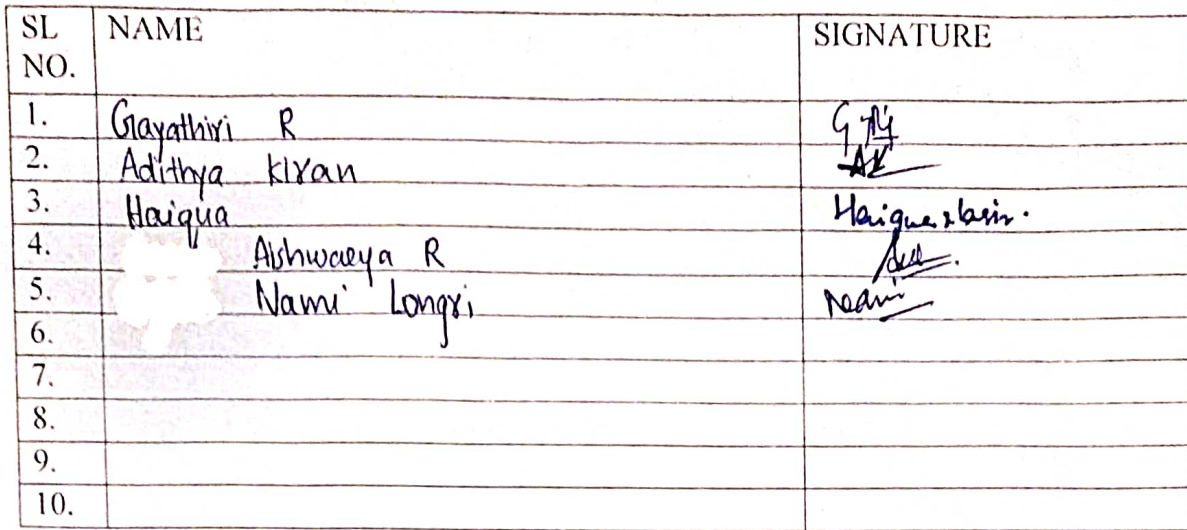 SL NO. NAME SIGNATURE
1. Gayathiri R
2. Adithya Kiran AK
3. Haiqua
4. Aishwarya R
5. Nami Longri
6.
7.
8.
9.
10.